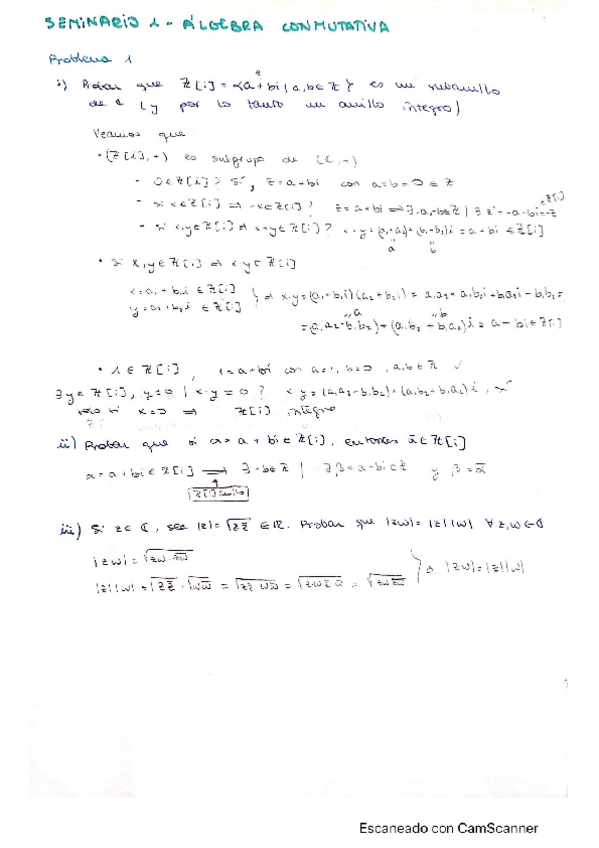 SEMINARIO 1 - ÁLGEBRA CONMUTATIVA
Problema 1
i) Probar que Z[i] = {a + bi | a, b ∈ Z} es un subanillo
de C (y por lo tanto un anillo íntegro)
Veamos que
• (Z[i], +) es subgrupo de (C, +)
- 0 ∈ Z[i]? Sí, z = a + bi con a = b = 0 ∈ Z
- si x ∈ Z[i] ⇒ -x ∈ Z[i]? z = a + bi ⇒ ∃ -a, -b ∈ Z | ∃ z' = -a - bi = -z ∈ Z[i]
- si x, y ∈ Z[i] ⇒ x + y ∈ Z[i]?
• si x, y ∈ Z[i] ⇒ x·y ∈ Z[i]
x = a₁ + b₁i ∈ Z[i]
y = a₂ + b₂i ∈ Z[i] } ⇒ x·y = (a₁ + b₁i)(a₂ + b₂i) = a₁a₂ + a₁b₂i + b₁a₂i - b₁b₂ =
= (a₁a₂ - b₁b₂) + (a₁b₂ + b₁a₂)i = a - bi ∈ Z[i]
• 1 ∈ Z[i], 1 = a + bi con a = 1, b = 0, a, b ∈ Z ✓
∃ y ∈ Z[i], y ≠ 0 | x·y = 0? x·y = (a₁a₂ - b₁b₂) + (a₁b₂ + b₁a₂)i,
solo si x = 0 ⇒ Z[i] íntegro
ii) Probar que si α = a + bi ∈ Z[i], entonces ᾱ ∈ Z[i]
α = a + bi ∈ Z[i] ⟹ ∃ -b ∈ Z | ∃ β = a - bi ∈ Z y β = ᾱ
Z[i] anillo
iii) Si z ∈ C, sea |z| = √(z z̄) ∈ R. Probar que |zw| = |z||w| ∀ z, w ∈ C
|zw| =
|z||w| = √(z z̄) · √(w w̄) = √(z z̄ w w̄) = } ⇒ |zw| = |z||w|
Escaneado con CamScanner